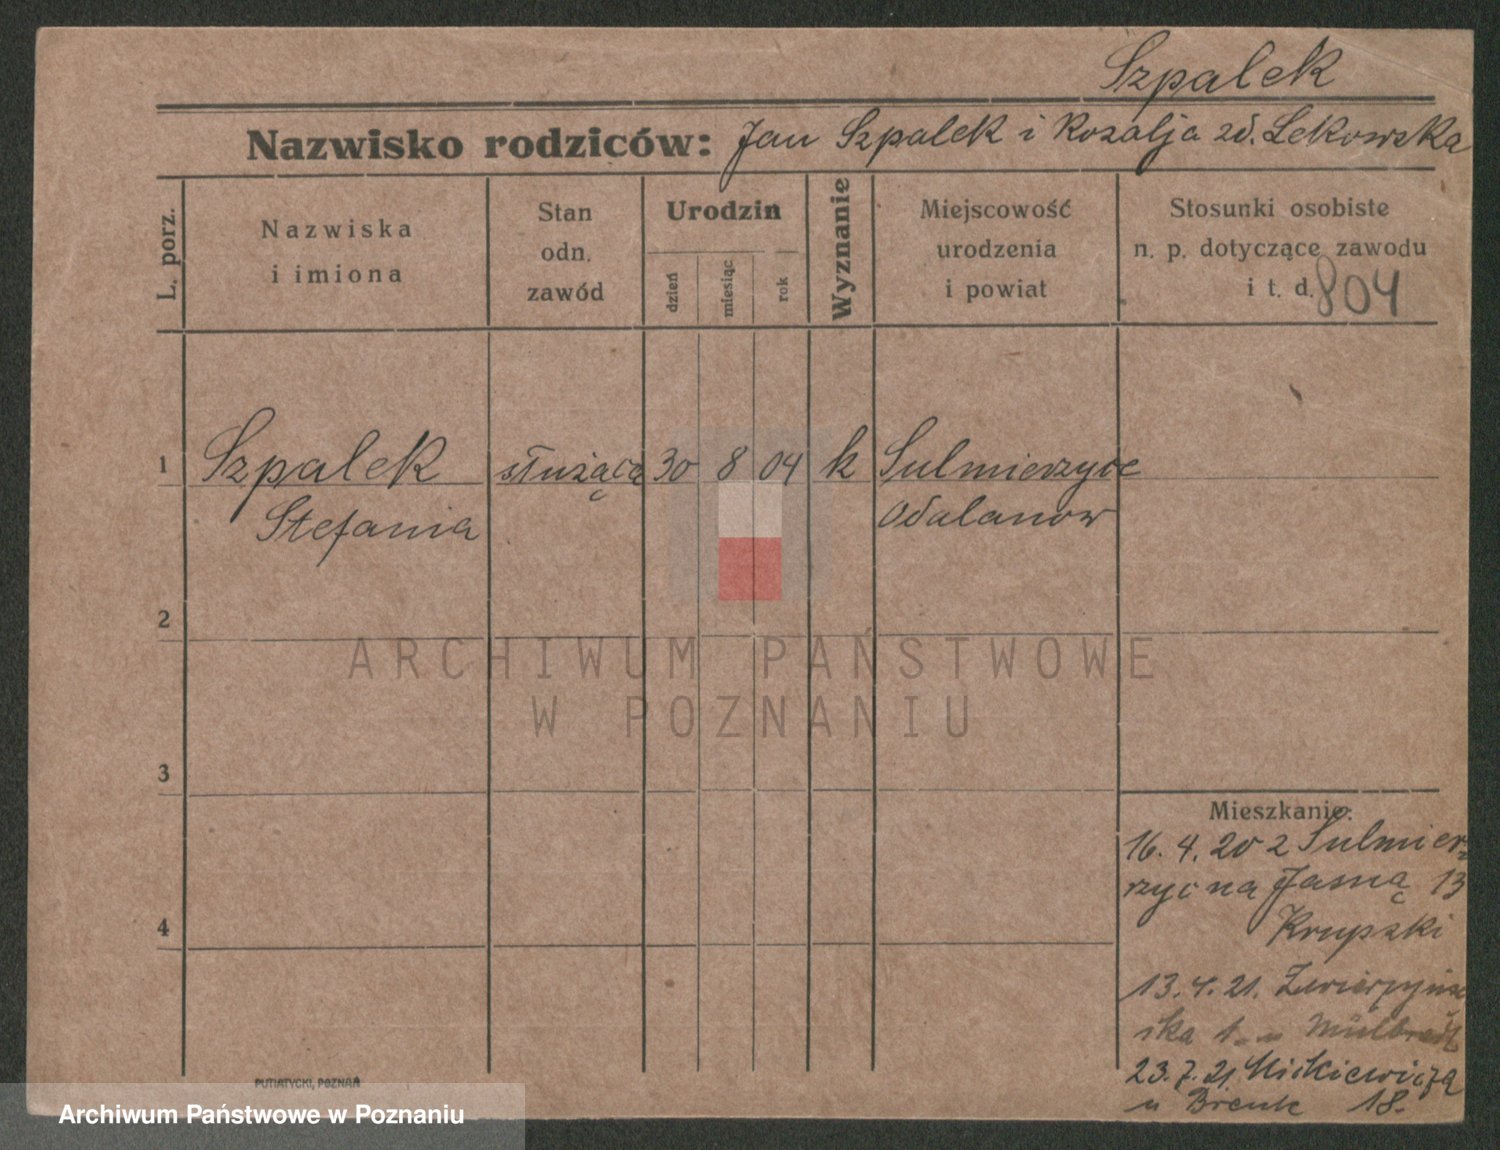 Szpalek
Nazwisko rodziców: Jan Szpalek i Rozalja zd. Lekowska
L. porz.
Nazwiska
i imiona
Stan
odn.
zawód
Urodzin
dzień
miesiąc
rok
Wyznanie
Miejscowość
urodzenia
i powiat
Stosunki osobiste
n. p. dotyczące zawodu
i t. d. 804
1 Szpalek służąca 30 8 04 k Sulmierzyce
Stefania Odalanow
2
ARCHIWUM PAŃSTWOWE
W POZNANIU
3
Mieszkanie:
16. 4. 20 z Sulmier-
zyc na Jasną 13
Krupski
4
13. 4. 21. Zwierzyniec
ska 1 u
23. 7. 21. Mickiewicza
u Brenk 18.
PUTIATYCKI, POZNAŃ
Archiwum Państwowe w Poznaniu